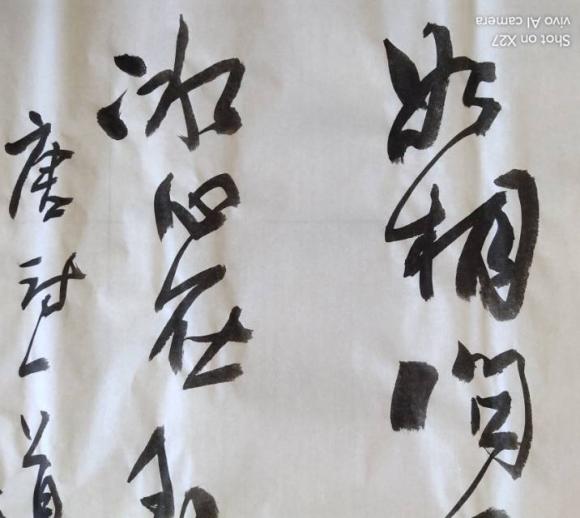 如相問
冰心在
唐詩一首
Shot on X27
vivo AI camera